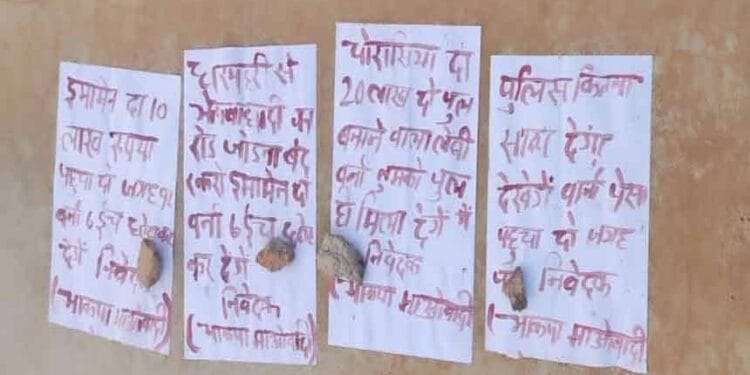 इमामेन दा 10
लाख रूपया
पहुचा दो जगह पर
वर्ना 6 ईंच छोटा कर
देगें निवेदक
(-भाकपा माओवादी
से
रोड जोडना बंद
करो इमामेन दा
वर्ना 6 ईंच छोटा
कर देगें
निवेदक
(-भाकपा माओवादी)
चोरासिया दा
20 लाख दो पुल
बनाने वाला लेवी
वर्ना तुमको पुल
मिला देगें
निवेदक
(-भाकपा माओवादी
पुलिस कितना
साथ देगा
देखेगें वर्ना पेसा
पहुचा दो जगह
निवेदक
(-भाकपा माओवादी